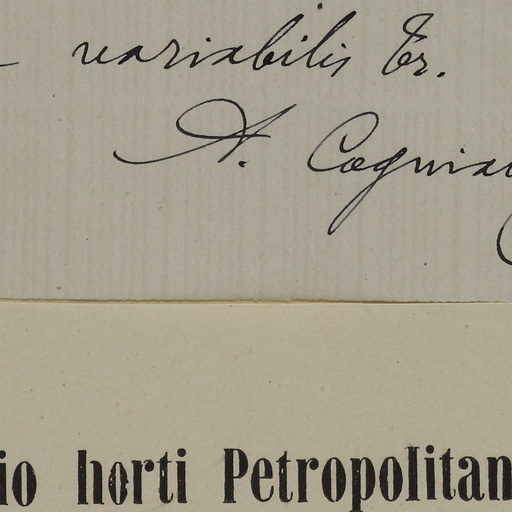 variabilis Tr.
A. Cogniau
io horti Petropolitan